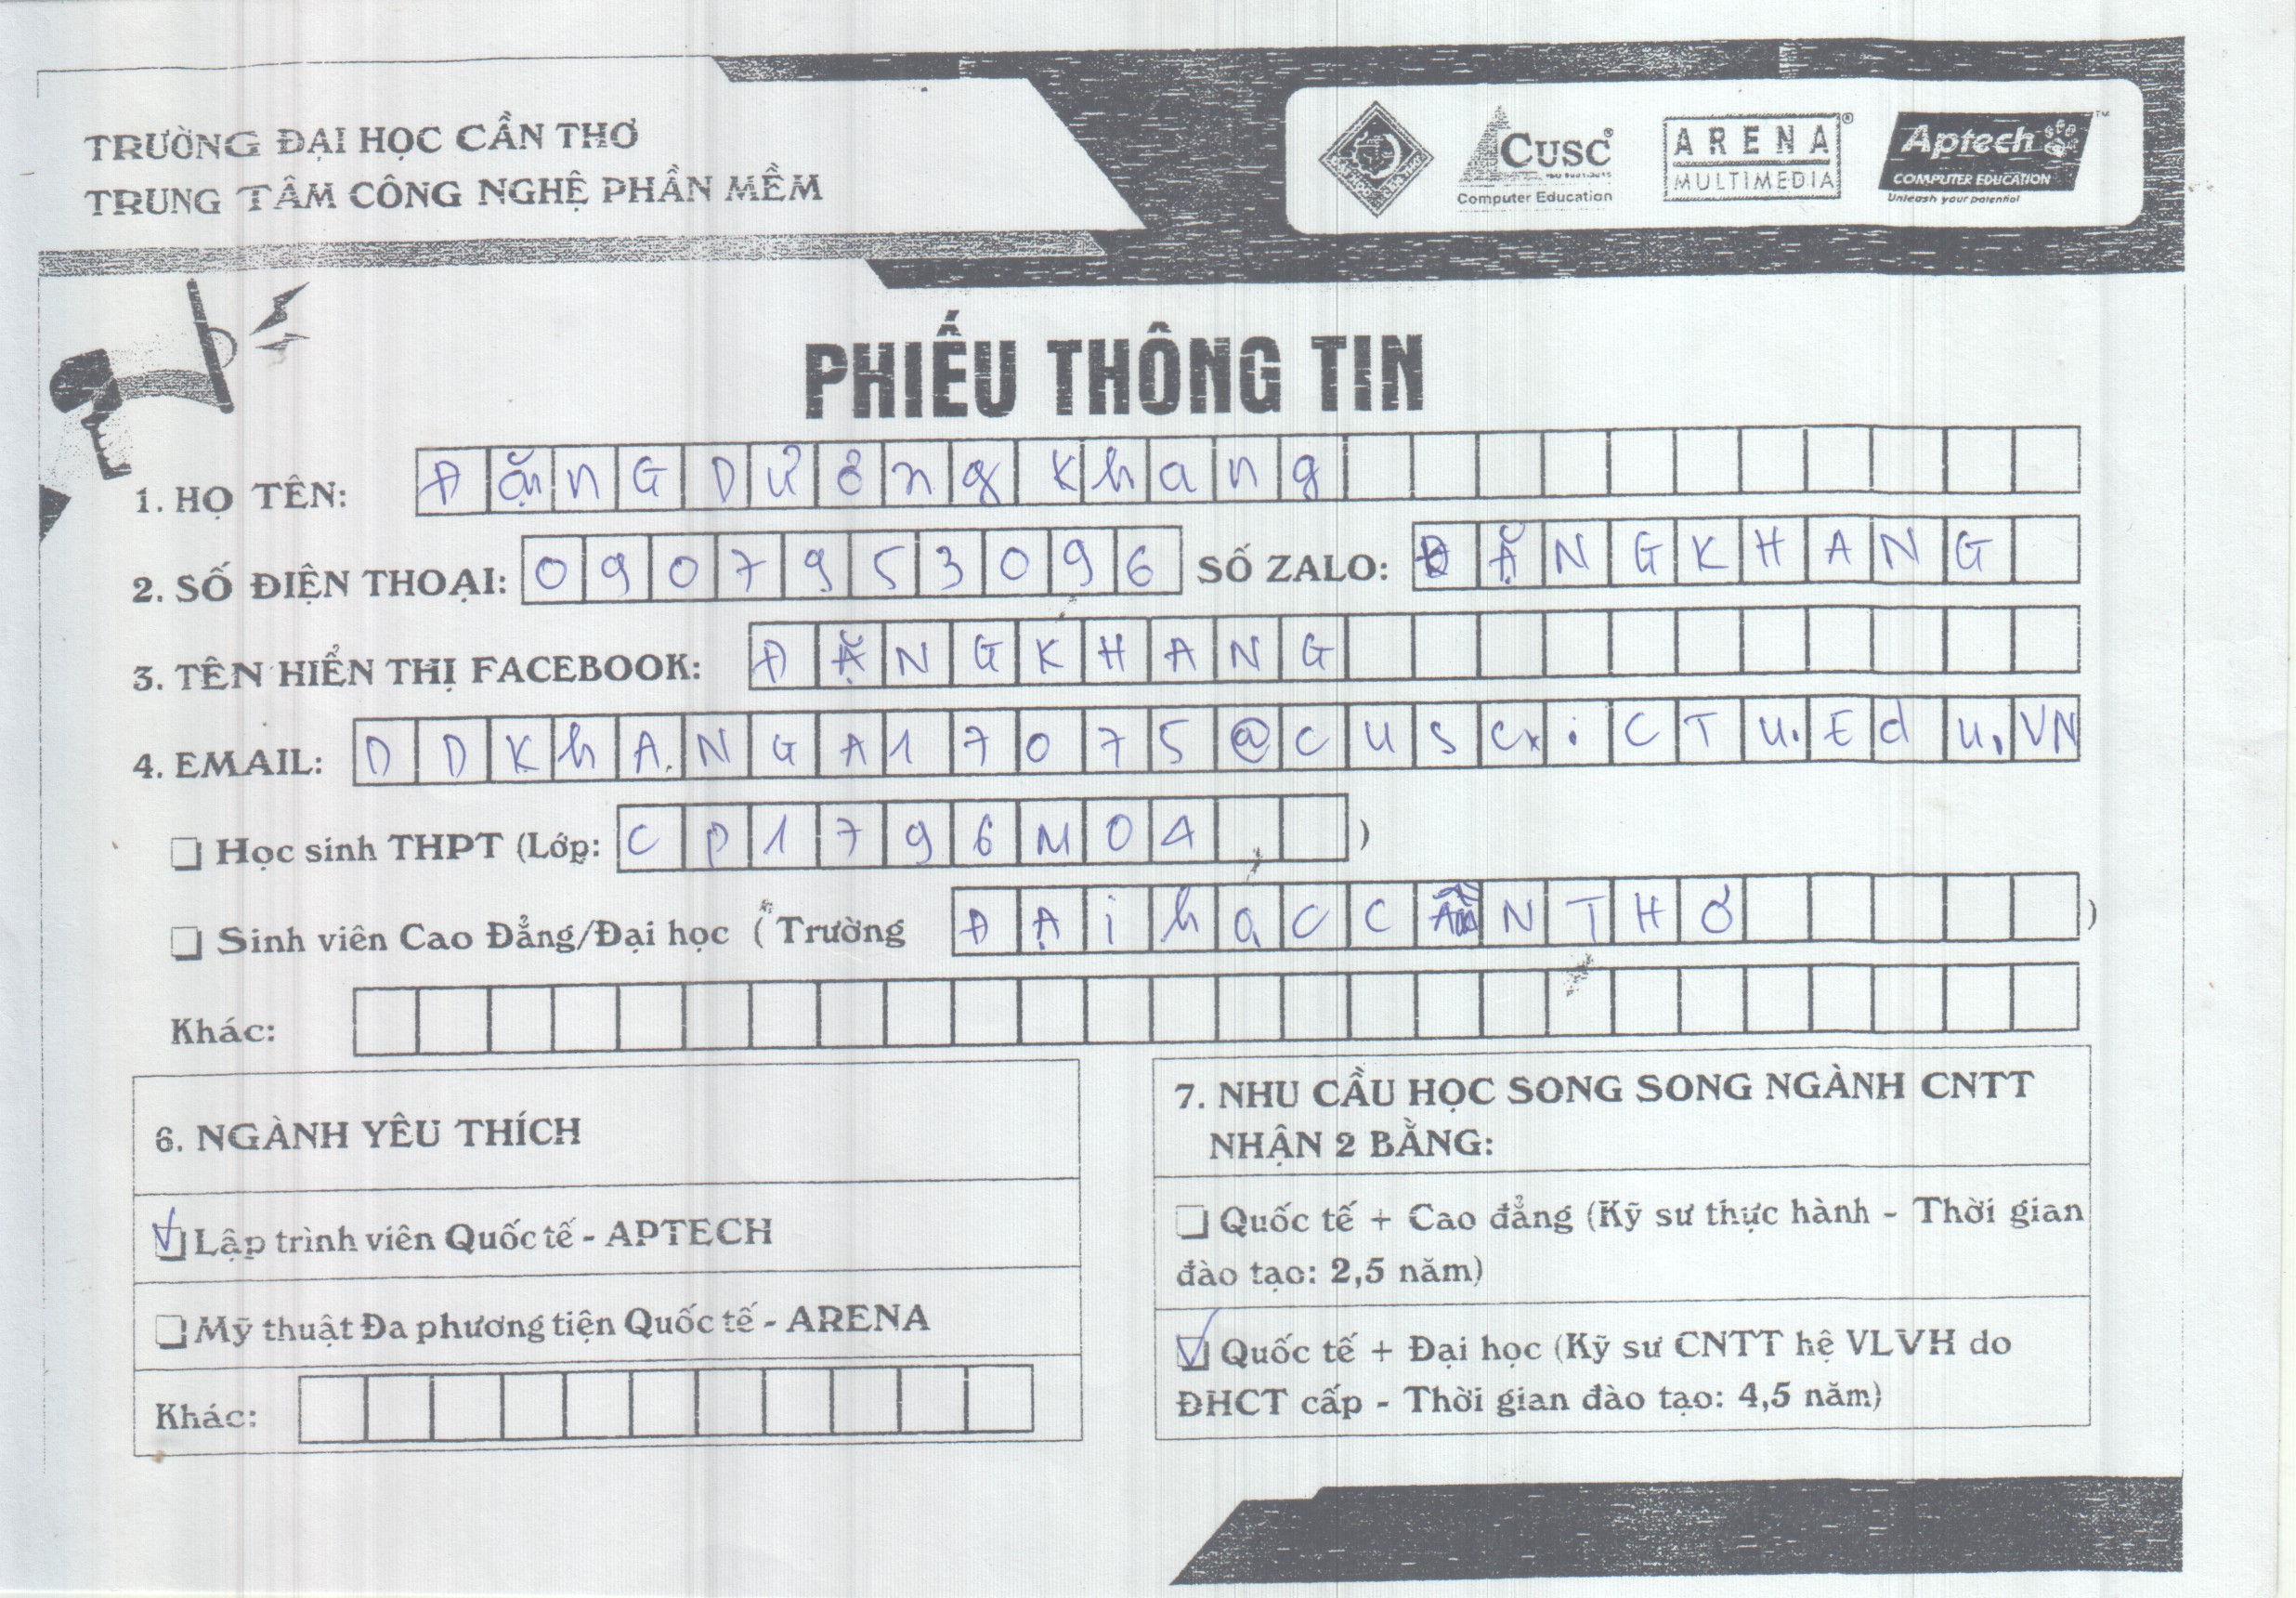 TRƯỜNG ĐẠI HỌC CẦN THƠ
TRUNG TÂM CÔNG NGHỆ PHẦN MỀM
CUSC
Computer Education
ARENA
MULTIMEDIA
Aptech
COMPUTER EDUCATION
Unleash your potential
PHIẾU THÔNG TIN
1. HỌ TÊN: ĐặnG Dương Khang
2. SỐ ĐIỆN THOẠI: 0907953096 SỐ ZALO: ĐẶNGKHANG
3. TÊN HIỂN THỊ FACEBOOK: ĐẶNGKHANG
4. EMAIL: DDKhANGA17075@CUSC.CTU.EdU.VN
Học sinh THPT (Lớp: CP1796M04)
Sinh viên Cao Đẳng/Đại học ( Trường ĐẠihọCCẦNTHƠ)
Khác:
6. NGÀNH YÊU THÍCH
Lập trình viên Quốc tế - APTECH
Mỹ thuật Đa phương tiện Quốc tế - ARENA
Khác:
7. NHU CẦU HỌC SONG SONG NGÀNH CNTT
NHẬN 2 BẰNG:
Quốc tế + Cao đẳng (Kỹ sư thực hành - Thời gian
đào tạo: 2,5 năm)
Quốc tế + Đại học (Kỹ sư CNTT hệ VLVH do
ĐHCT cấp - Thời gian đào tạo: 4,5 năm)